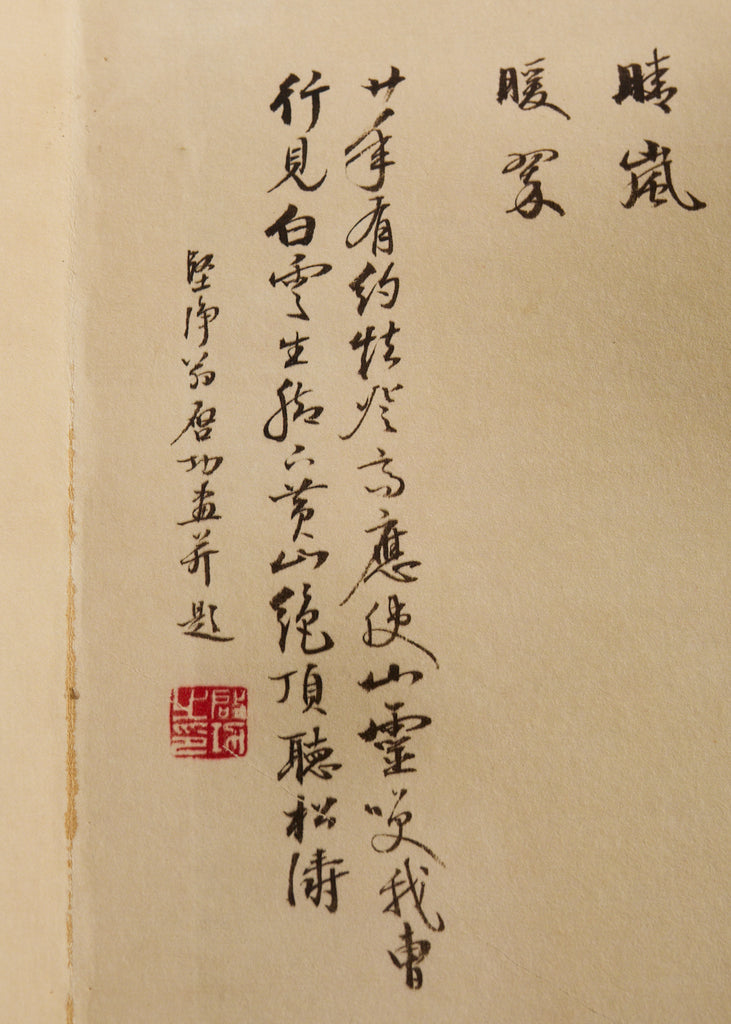 晴嵐
暖翠
廿年有約登高應使山靈咲我曹
行見白雲生腳下黃山絕頂聽松濤
堅淨翁啓功畫并題
啓功之印